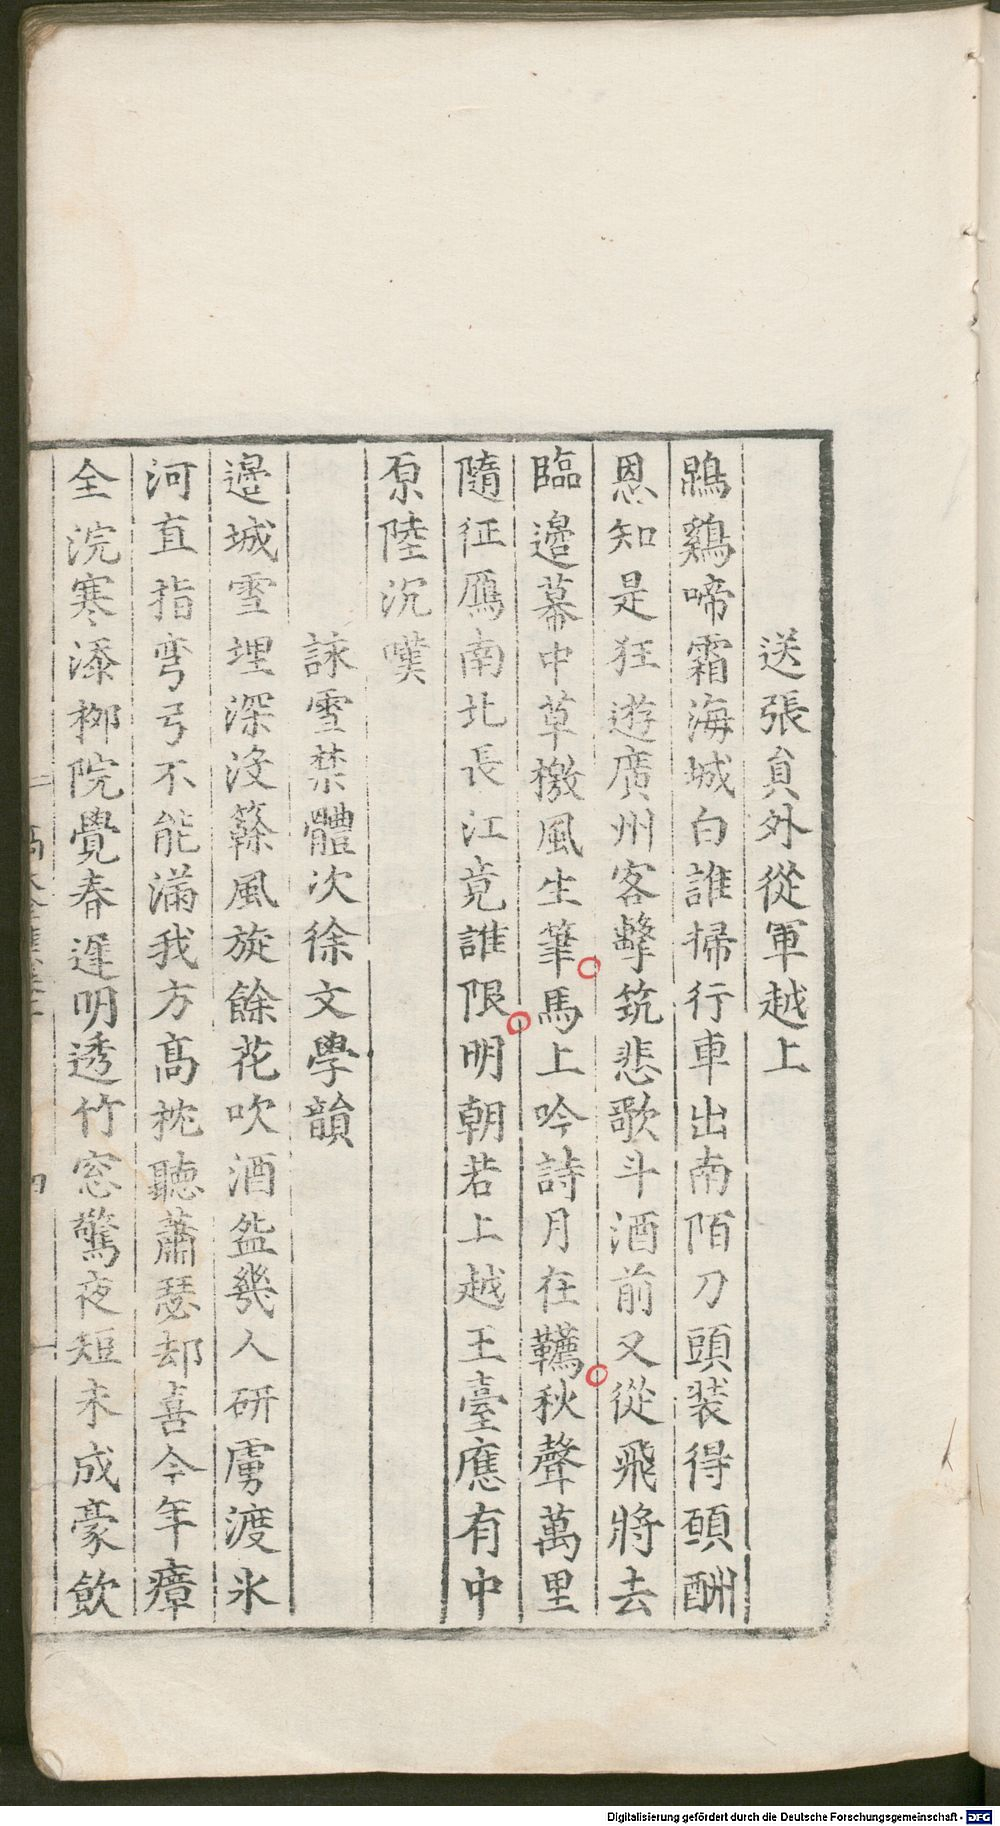 送張貟外從軍越上
鵾鷄啼霜海城白誰掃行車出南陌刀頭装得頭酬
恩知是狂遊廣州客擊筑悲歌斗酒前又從飛將去
臨邉幕中草檄風生筆馬上吟詩月在韉秋聲萬里
隨征鴈南北長江竟誰限明朝若上越王臺應有中
原陸沉嘆
詠雪禁體次徐文學韻
邉城雪埋深没簳風旋餘花吹酒盆幾人研虜渡氷
河直指彎弓不能滿我方髙枕聽蕭瑟却喜今年瘴
全浣寒添柳院覺春遲明透竹窓驚夜短未成豪飲
四
Digitalisierung gefördert durch die Deutsche Forschungsgemeinschaft - DFG